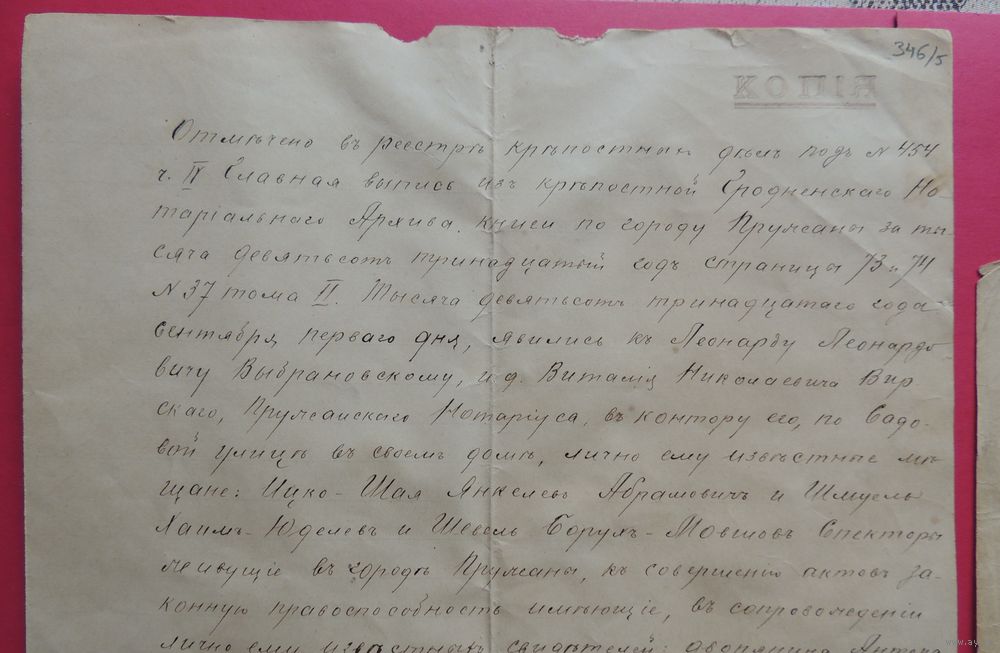 346/5
КОПІЯ
Отмѣчено въ реестрѣ крѣпостныхъ дѣлъ подъ N 454
ч. IV Главная выпись изъ крѣпостной Гродненскаго Но-
таріальнаго Архива книги по городу Пружаны за ты-
сяча девятьсотъ тринадцатый годъ страницы 73 и 74
N 37 тома II. Тысяча девятьсотъ тринадцатаго года
сентября перваго дня, явились къ Леонарду Леонардо
вичу Выбрановскому, и. д. Виталія Николаевича Вир
скаго, Пружанскаго Нотаріуса, въ контору его, по Садо-
вой улицѣ въ своемъ домѣ, лично ему извѣстные мѣ
щане: Ицко-Шая Янкелевъ Абрамовичъ и Шмуель
Хаимъ-Юделевъ и Шевель Борухъ-Мовшовъ Спекторы
живущіе въ городѣ Пружаны, къ совершенію актовъ за-
конную правоспособность имѣющіе, въ сопровожденіи
лично ему извѣстныхъ свидѣтелей: дворянина Антона
www.ay